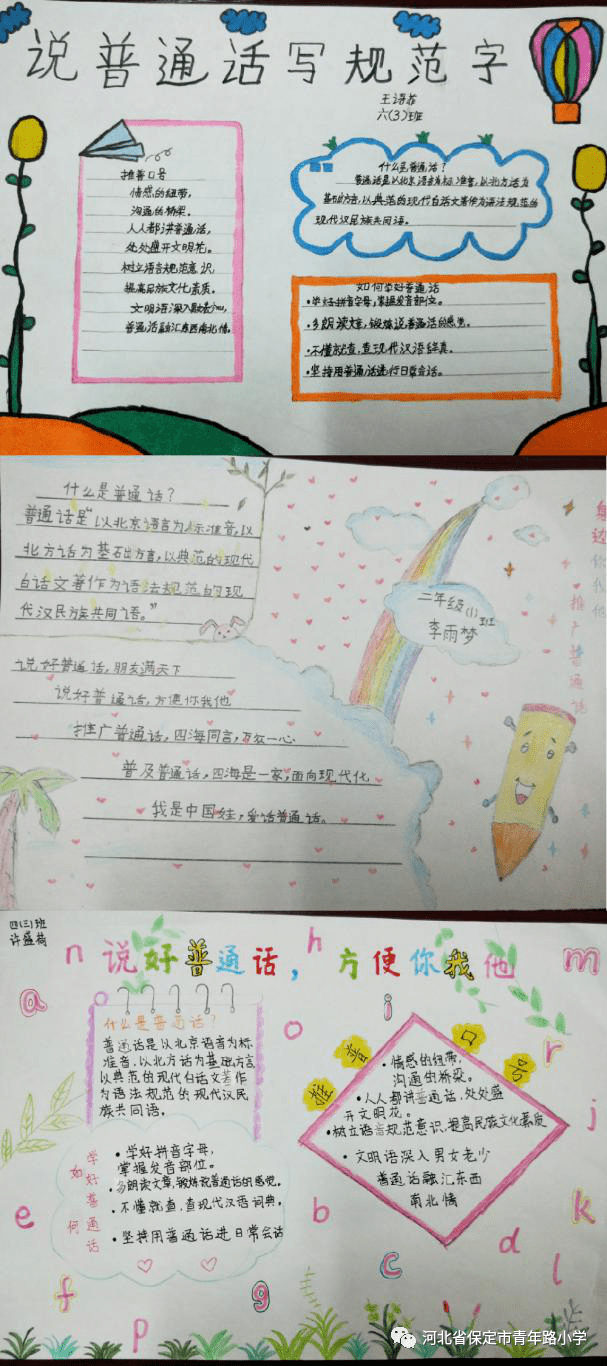 说普通话写规范字
六(3)班
推普口号
情感的纽带，
沟通的桥梁。
人人都讲普通话，
处处盛开文明花。
树立语言规范意识
提高民族文化素质。
文明语深入
普通话融汇东西南北情。
什么是普通话？
普通话是以北京语音为标准音，以北方话为
基础方言，以典范的现代白话文著作为语法规范的
现代汉民族共同语。
如何学好普通话
•学好拼音字母，掌握发音部位。
•多朗读文章，锻炼说普通话的感觉。
•不懂就查，查现代汉语辞典。
•坚持用普通话进行日常会话。
什么是普通话？
普通话是“以北京语言为标准音，以
北方话为基础方言，以典范的现代
白话文著作为语法规范的现
代汉民族共同语。”
二年级(1)班
李雨梦
身边你我他
推广普通话
说好普通话，朋友满天下
说好普通话，方便你我他
推广普通话，四海同言，万众一心
普及普通话，四海是一家，面向现代化
我是中国娃，爱话普通话。
四(三)班
说好普通话，方便你我他
n
h
m
a
i
o
r
j
e
b
k
d
c
l
f
g
p
什么是普通话？
普通话是以北京语音为标
准音，以北方话为基础方言，
以典范的现代白话文著作
为语法规范的现代汉民
族共同语。
如何学好普通话
•学好拼音字母，
掌握发音部位。
•多朗读文章，锻炼说普通话的感觉。
•不懂就查，查现代汉语词典。
•坚持用普通话进日常会话
推普口号
•情感的纽带，
沟通的桥梁。
•人人都讲普通话，处处盛
开文明花。
•树立语言规范意识，提高民族文化素质
•文明语深入男女老少
普通话融汇东西
南北情
河北省保定市青年路小学